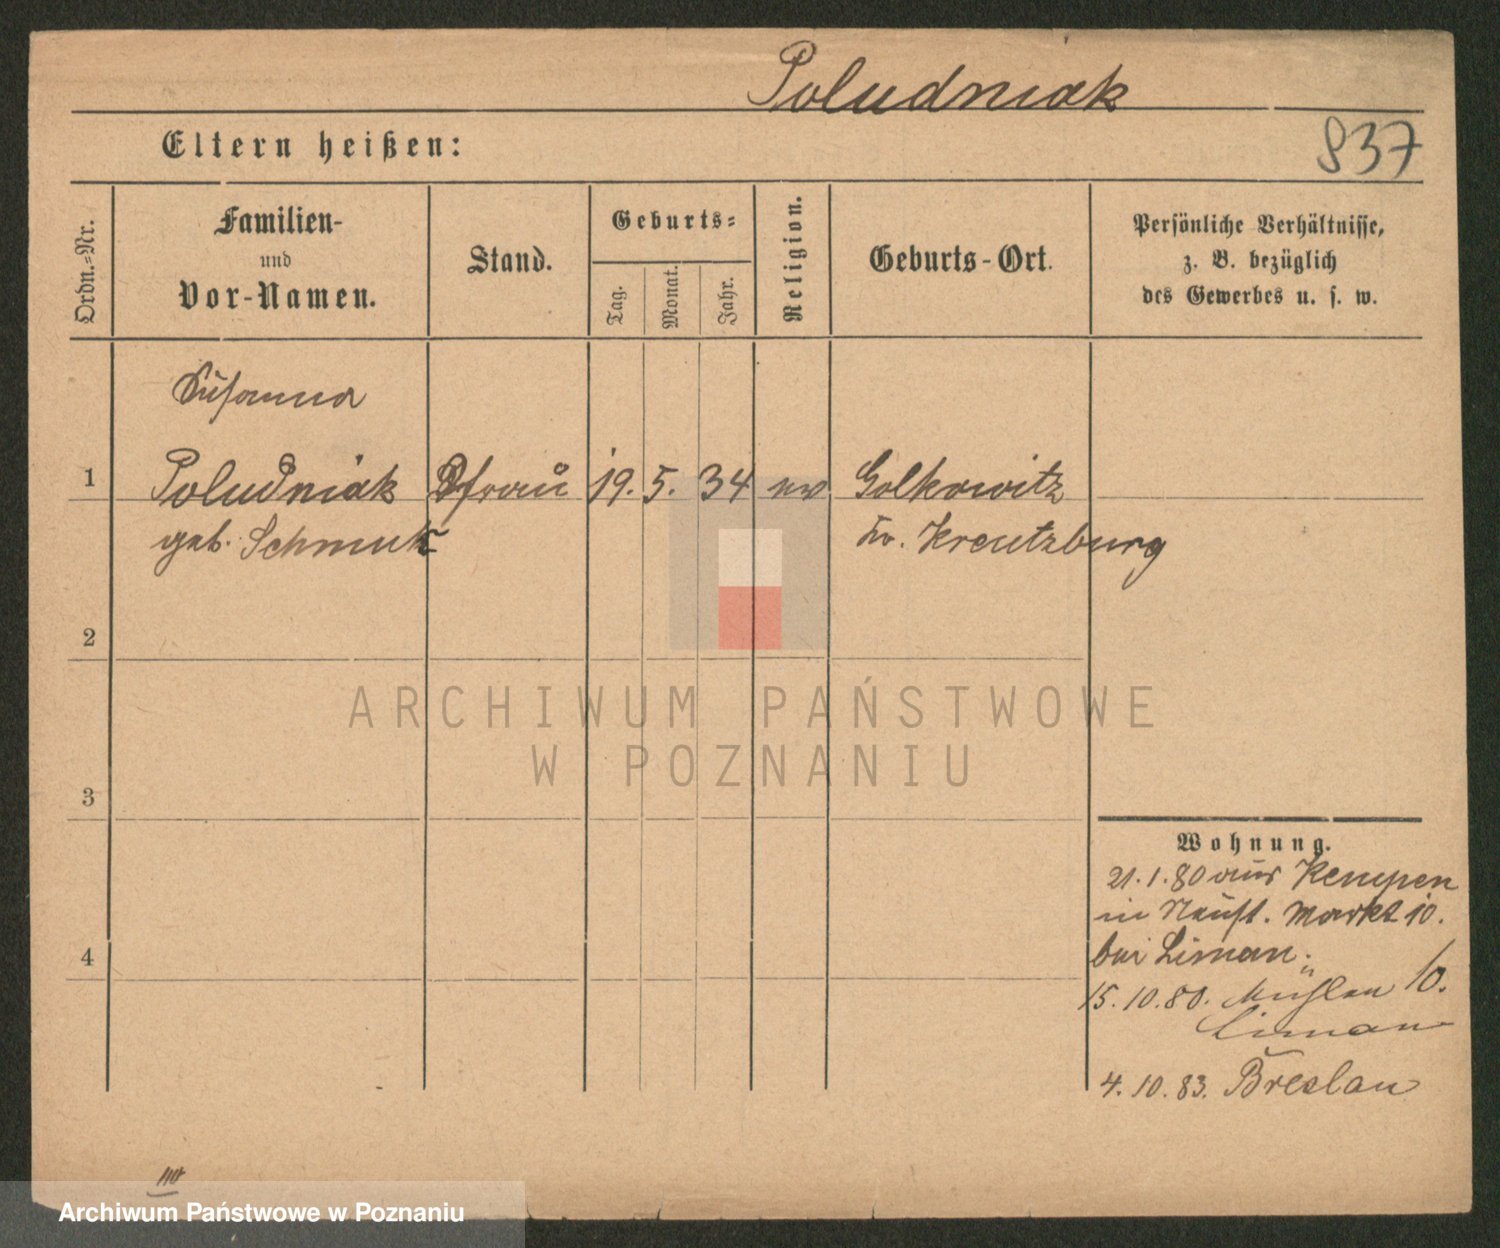 Poludniak
837
Eltern heißen:
Ordn.-Nr.
Familien-
und
Vor-Namen.
Stand.
Geburts-
Tag.
Monat.
Jahr.
Religion.
Geburts-Ort.
Persönliche Verhältnisse,
z. B. bezüglich
des Gewerbes u. s. w.
Susanna
1
Poludniak
frau
19.
5.
34
ev
Golkowitz
geb. Schmuk
Kr. Kreutzburg
2
3
4
ARCHIWUM PAŃSTWOWE
W POZNANIU
Wohnung.
21.1.80 aus Kempen
in Neust. Markt 10.
bei Liman.
15.10.80. Mühlen 10.
Liman
4.10.83. Breslau
Archiwum Państwowe w Poznaniu